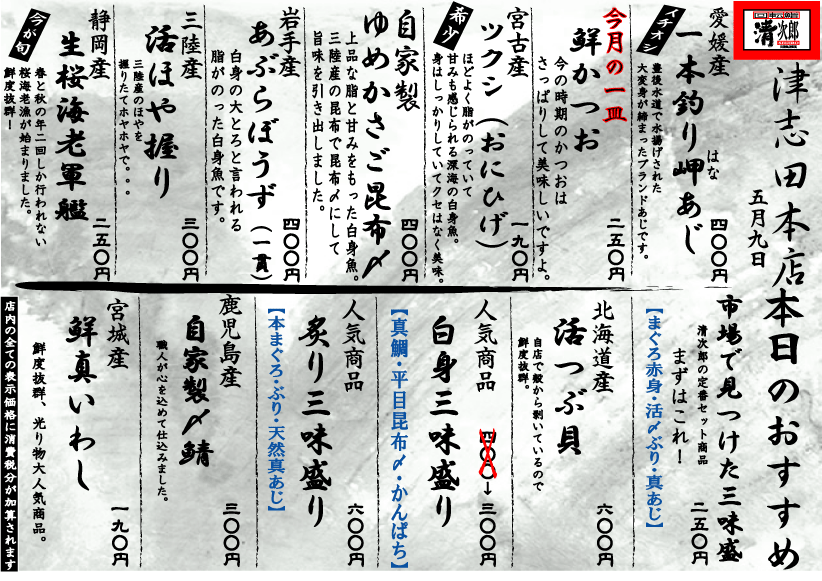 清次郎
津志田本店 本日のおすすめ
五月九日
イチオシ
愛媛産
一本釣り岬あじ
はな
豊後水道で水揚げされた
大変身が締まったブランドあじです。
四〇〇円
今月の一皿
鮮かつお
今の時期のかつおは
さっぱりして美味しいですよ。
二五〇円
希少
宮古産
ツクシ(おにひげ)
ほどよく脂がのっていて
甘みも感じられる深海の白身魚。
身はしっかりしていてクセはなく美味。
一九〇円
自家製
ゆめかさご昆布〆
上品な脂と甘みをもった白身魚。
三陸産の昆布で昆布〆にして
旨味を引き出しました。
四〇〇円
岩手産
あぶらぼうず(一貫)
白身の大とろと言われる
脂がのった白身魚です。
四〇〇円
三陸産
活ほや握り
三陸産のほやを
握りたてホヤホヤで。。。
三〇〇円
今が旬
静岡産
生桜海老軍艦
春と秋の年二回しか行われない
桜海老漁が始まりました。
鮮度抜群!
二五〇円
市場で見つけた三味盛
清次郎の定番セット商品
まずはこれ!
【まぐろ赤身・活〆ぶり・真あじ】
二五〇円
北海道産
活つぶ貝
自店で殻から剥いているので
鮮度抜群。
六〇〇円
人気商品
白身三味盛り
四〇〇→三〇〇円
【真鯛・平目昆布〆・かんぱち】
人気商品
炙り三味盛り
【本まぐろ・ぶり・天然真あじ】
六〇〇円
鹿児島産
自家製〆鯖
職人が心を込めて仕込みました。
三〇〇円
宮城産
鮮真いわし
鮮度抜群、光り物大人気商品。
一九〇円
店内の全ての表示価格に消費税分が加算されます